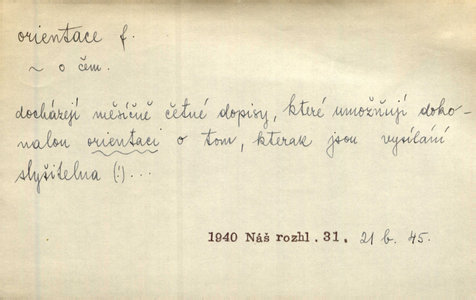 orientace f.
~ o čem.
docházejí měsíčně četné dopisy, které umožňují doko-
nalou orientaci o tom, kterak jsou vysílání
slyšitelna (!)...
1940 Náš rozhl. 31. 21 b. 45.